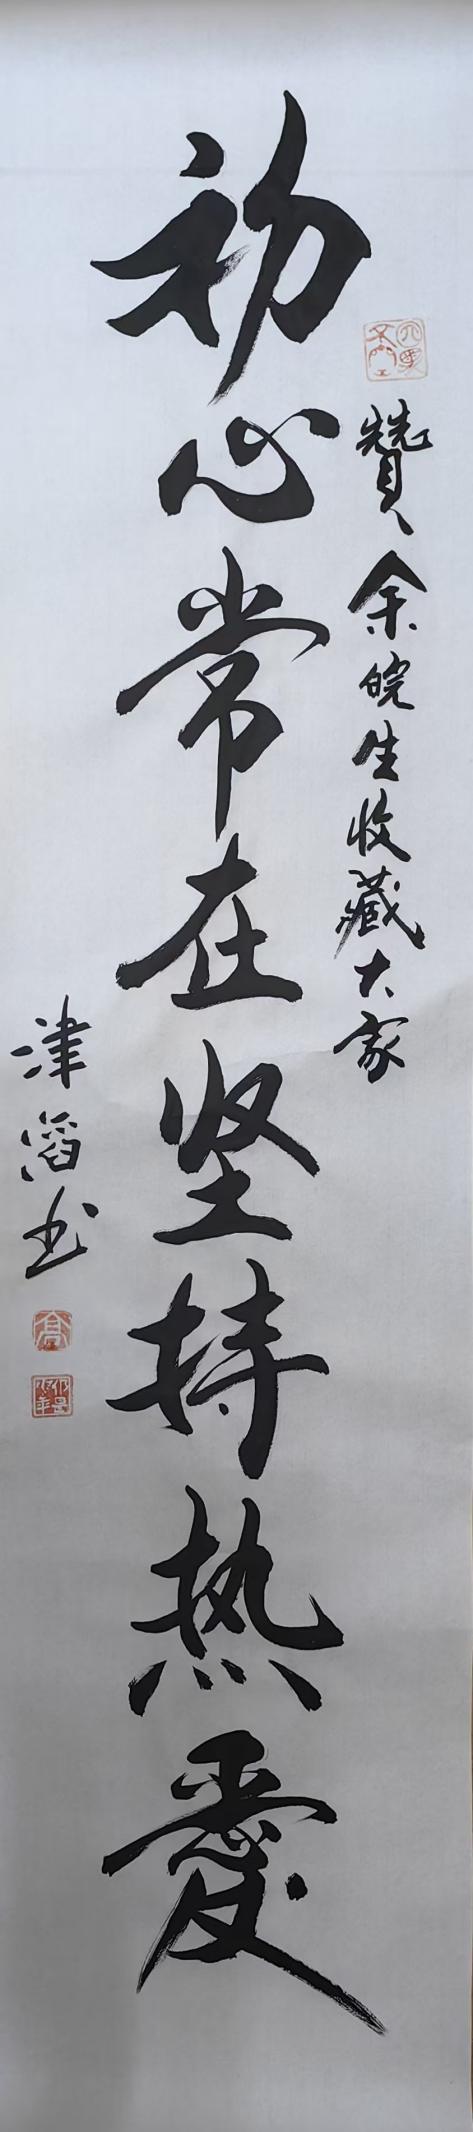 赞余皖生收藏大家
初心常在坚持热爱
津滔书